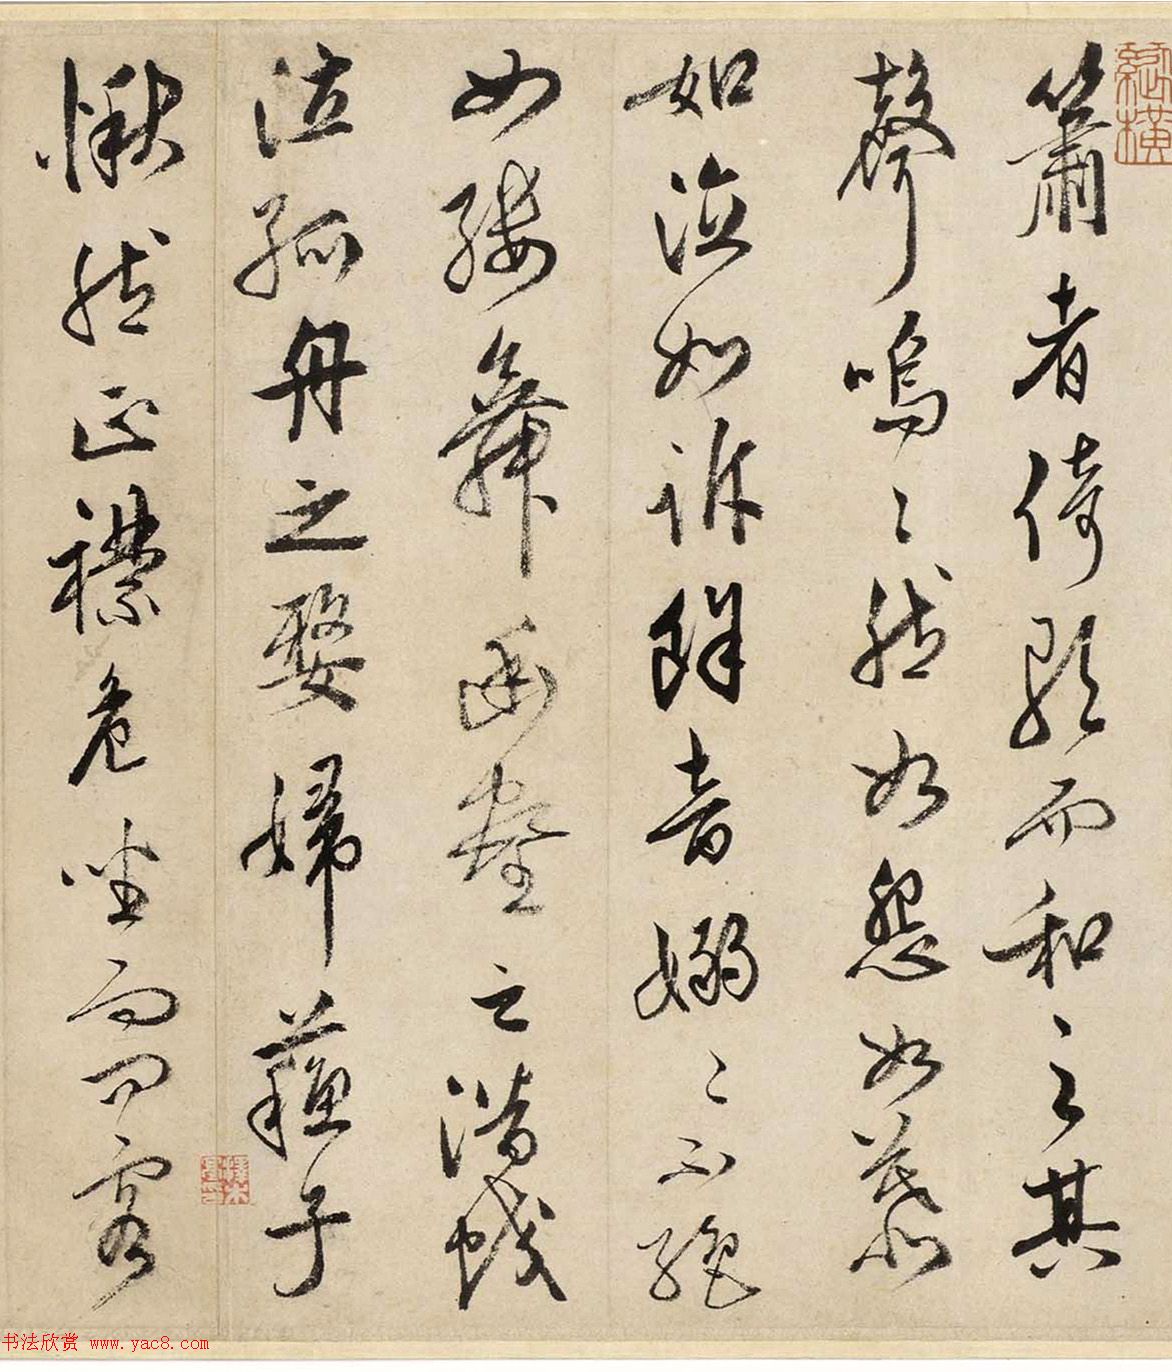 簫者倚歌而和之其
聲嗚〻然如怨如慕
如泣如訴餘音嫋〻不絕
如縷舞幽壑之潛蛟
泣孤舟之嫠婦蘇子
愀然正襟危坐而問客
书法欣赏 www.yac8.com